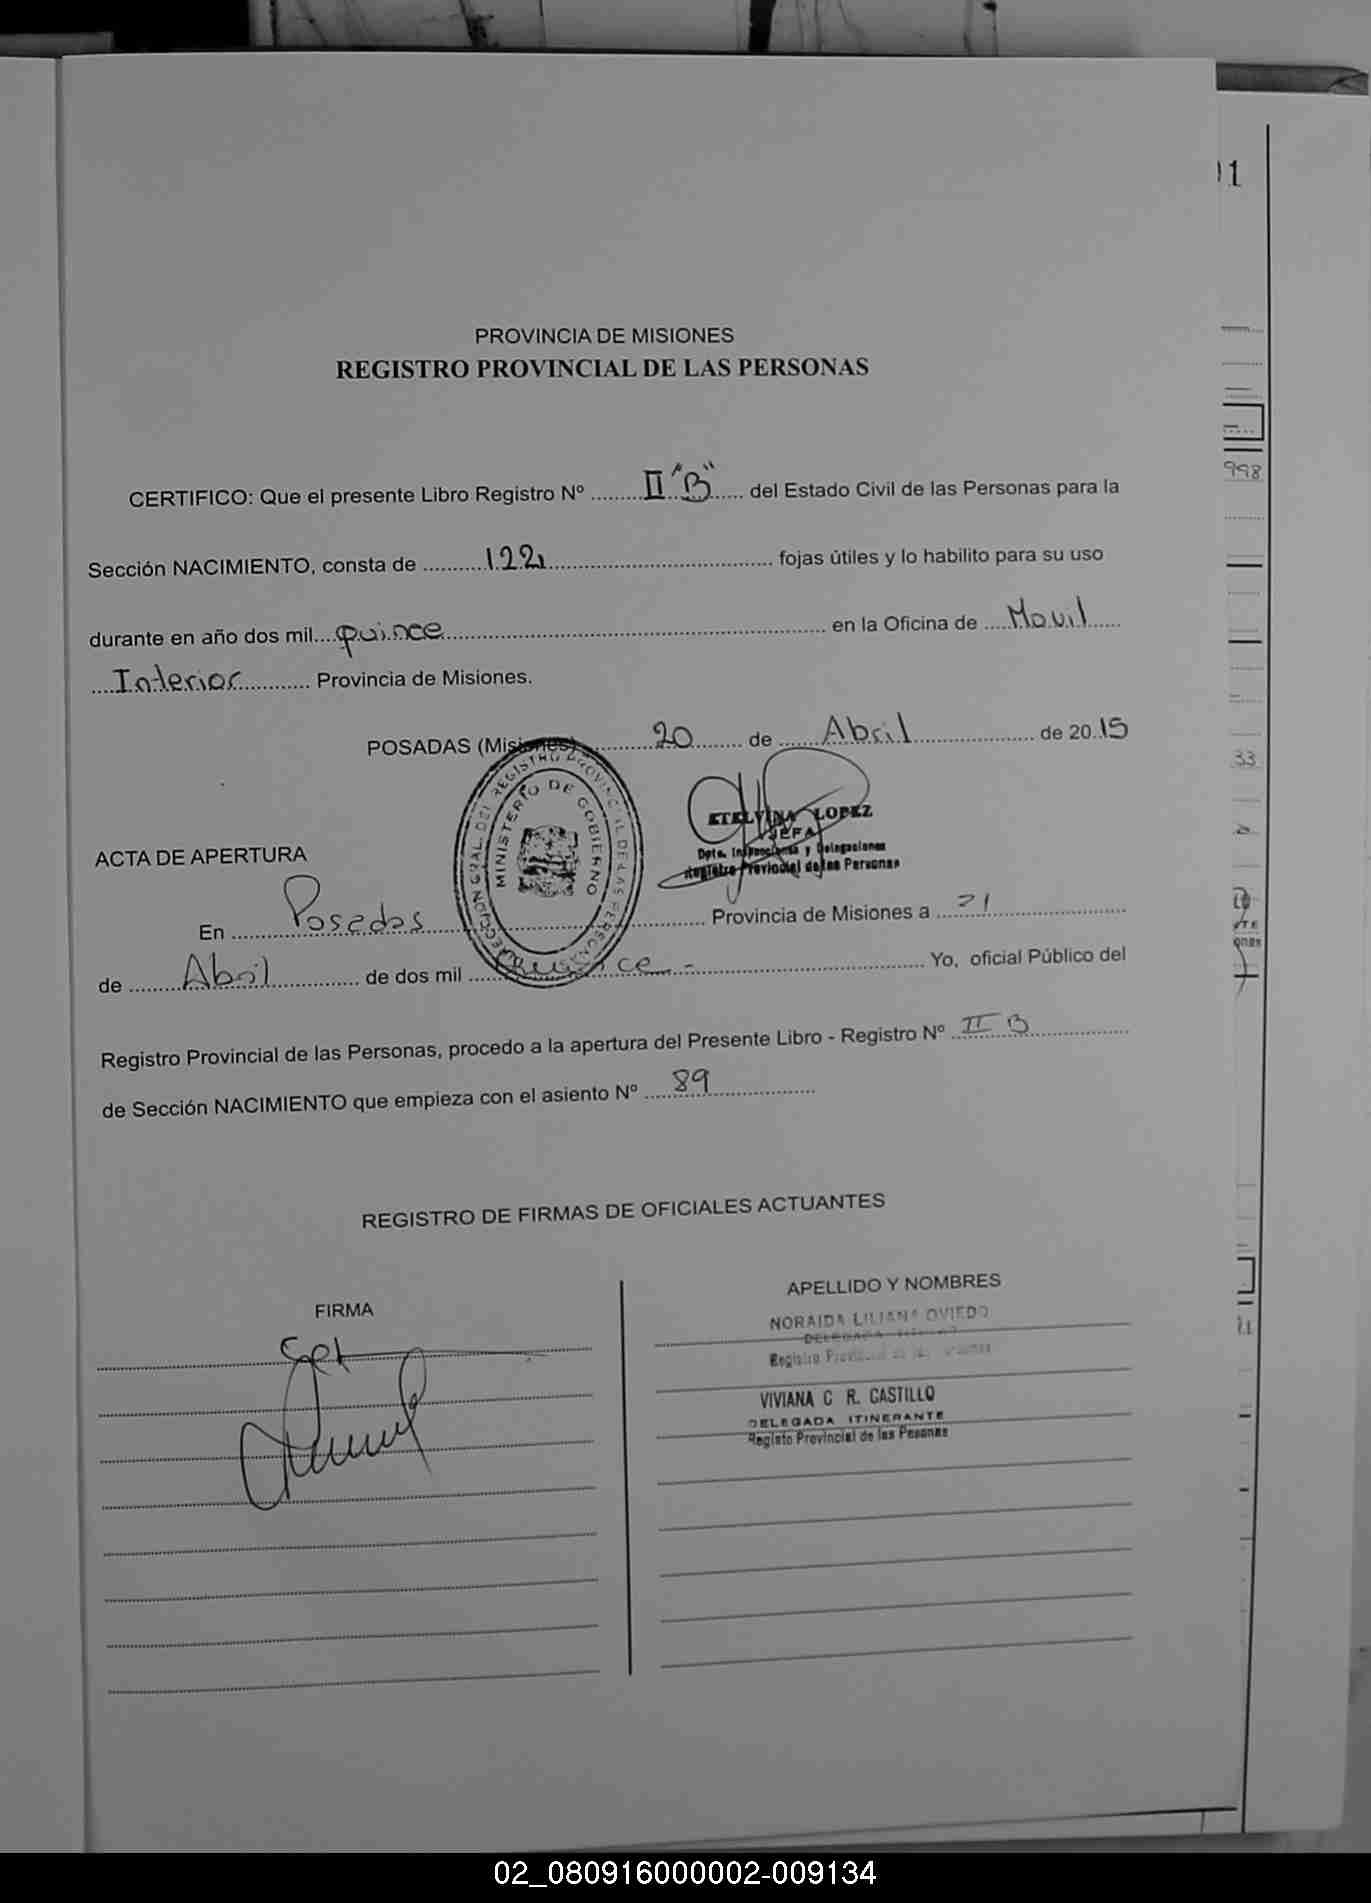 PROVINCIA DE MISIONES
REGISTRO PROVINCIAL DE LAS PERSONAS
CERTIFICO: Que el presente Libro Registro Nº II "B" del Estado Civil de las Personas para la
Sección NACIMIENTO, consta de 122 fojas útiles y lo habilito para su uso
durante en año dos mil quince en la Oficina de Movil
Interior Provincia de Misiones.
POSADAS (Misiones) 20 de Abril de 2015
ETELVINA LOPEZ
JEFA
Dpto. Inspecciones y Delegaciones
Registro Provincial de las Personas
MINISTERIO DE GOBIERNO
ACTA DE APERTURA
En Posadas Provincia de Misiones a 21
de Abril de dos mil quince - Yo, oficial Público del
Registro Provincial de las Personas, procedo a la apertura del Presente Libro - Registro Nº II B
de Sección NACIMIENTO que empieza con el asiento Nº 89
REGISTRO DE FIRMAS DE OFICIALES ACTUANTES
FIRMA
APELLIDO Y NOMBRES
NORAIDA LILIANA OVIEDO
DELEGADA
Registro Provincial de las
VIVIANA C R. CASTILLO
DELEGADA ITINERANTE
Registo Provincial de las Pesonas
998
33
02_080916000002-009134